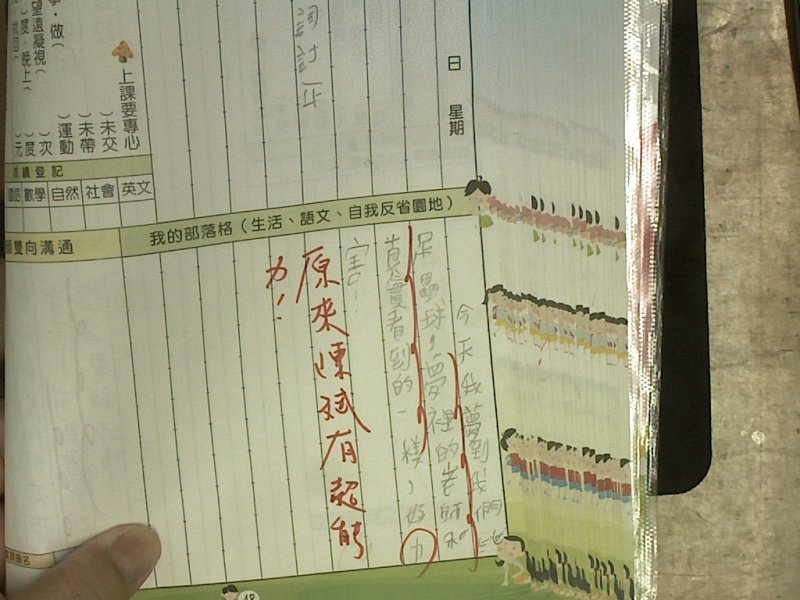 日　星期
詞訂正
上課要專心
）未交
）未帶
）運動
）次
）度
）元
學‧做（
望遠凝視（
）度‧晚上（
績登記
英文
社會
自然
數學
我的部落格（生活、語文、自我反省園地）
師雙向溝通
今天我夢到我們
足壘球，夢裡的老師和
真實看到的一樣，好
害！
原來陳斌有超能
力！
48